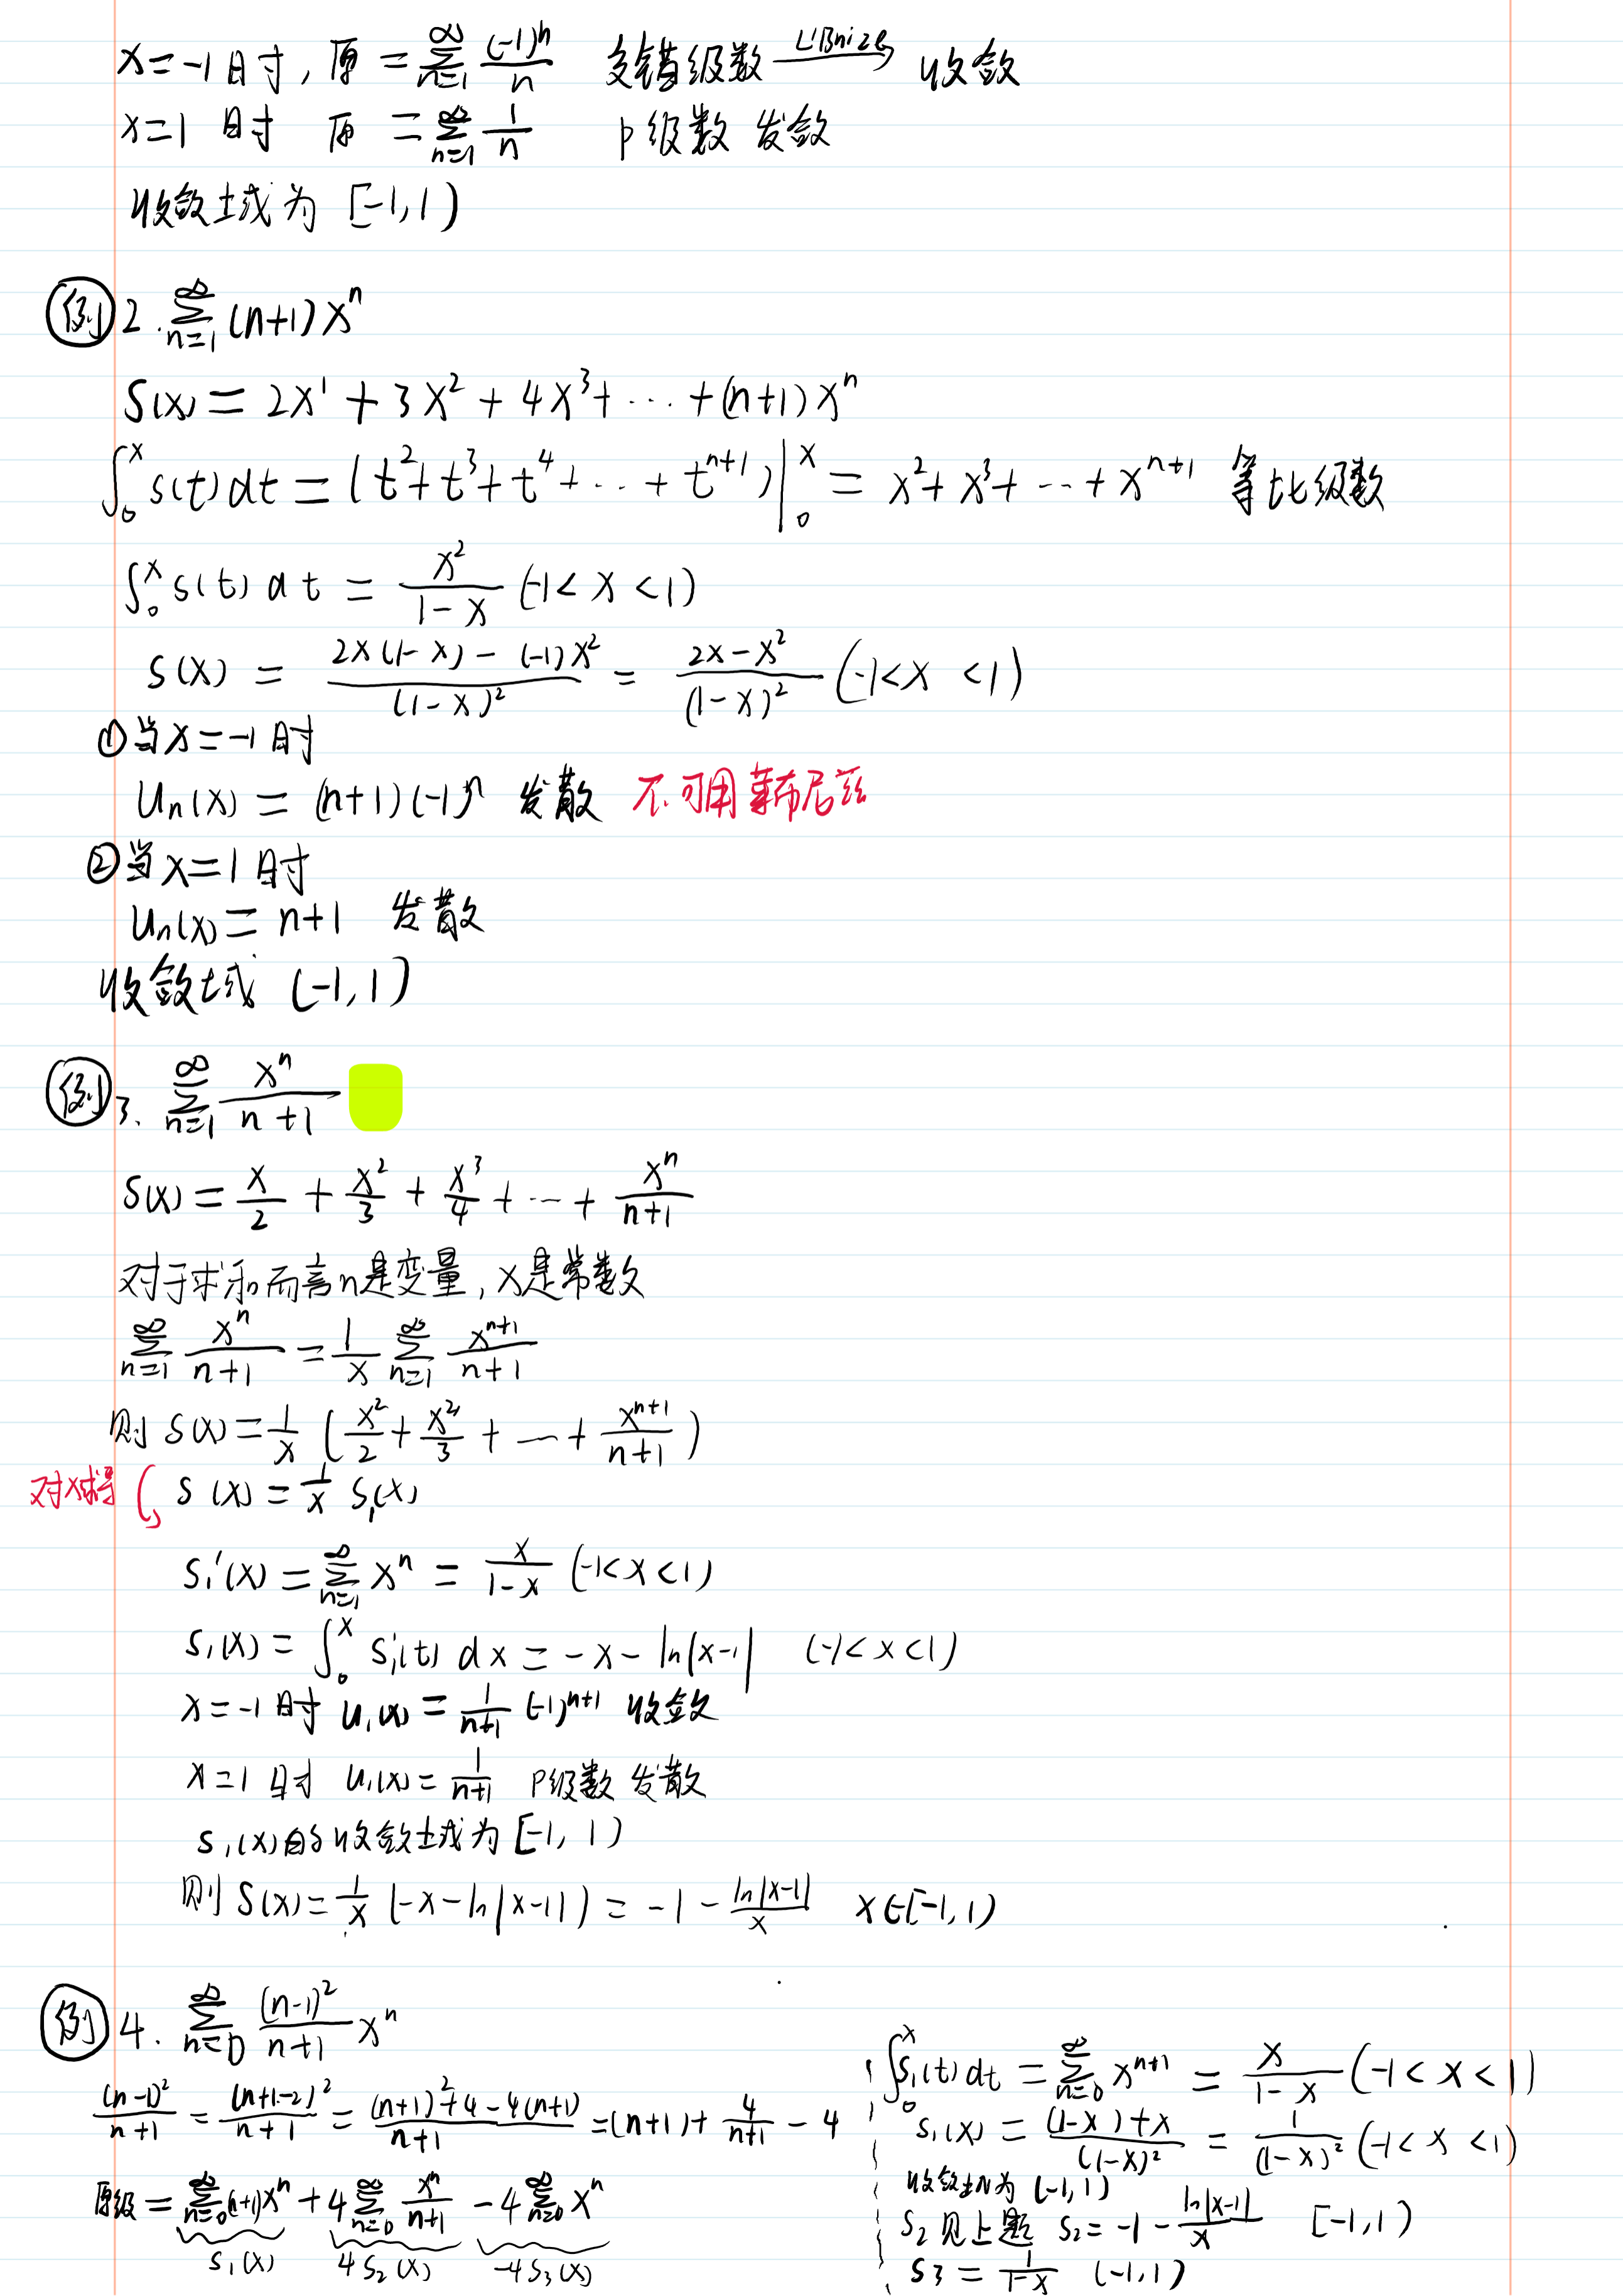 x=-1时, 原 = ∑_{n=1}^{∞} (-1)^n/n 交错级数 —LiBnize→ 收敛
x=1 时 原 = ∑_{n=1}^{∞} 1/n p级数 发敛
收敛域为 [-1,1)
例 2. ∑_{n=1}^{∞} (n+1)x^n
S(x) = 2x^1 + 3x^2 + 4x^3 + ⋯ + (n+1)x^n
∫_0^x s(t)dt = (t^2+t^3+t^4+⋯+t^{n+1})|_0^x = x^2+x^3+⋯+x^{n+1} 等比级数
∫_0^x s(t)dt = x^2/(1-x) (-1<x<1)
S(x) = (2x(1-x)-(-1)x^2)/(1-x)^2 = (2x-x^2)/(1-x)^2 (-1<x<1)
①当x=-1时
u_n(x) = (n+1)(-1)^n 发散 不可用莱布尼兹
②当x=1时
u_n(x) = n+1 发散
收敛域 (-1,1)
例 3. ∑_{n=1}^{∞} x^n/(n+1)
S(x) = x/2 + x^2/3 + x^3/4 + ⋯ + x^n/(n+1)
对于求和而言n是变量, x是常数
∑_{n=1}^{∞} x^n/(n+1) = 1/x ∑_{n=1}^{∞} x^{n+1}/(n+1)
则 S(x) = 1/x (x^2/2 + x^2/3 + ⋯ + x^{n+1}/(n+1))
对x求导 S(x) = 1/x S_1(x)
S_1'(x) = ∑_{n=1}^{∞} x^n = x/(1-x) (-1<x<1)
S_1(x) = ∫_0^x S_1'(t)dx = -x-ln|x-1| (-1<x<1)
x=-1时 u_1(x) = 1/(n+1) (-1)^{n+1} 收敛
x=1时 u_1(x) = 1/(n+1) P级数 发散
S_1(x)的收敛域为[-1,1)
则 S(x) = 1/x (-x-ln|x-1|) = -1 - ln|x-1|/x x∈[-1,1)
例 4. ∑_{n=0}^{∞} (n-1)^2/(n+1) x^n
(n-1)^2/(n+1) = (n+1-2)^2/(n+1) = ((n+1)^2+4-4(n+1))/(n+1) = (n+1) + 4/(n+1) - 4
原级 = ∑_{n=0}^{∞} (n+1)x^n + 4∑_{n=0}^{∞} x^n/(n+1) - 4∑_{n=0}^{∞} x^n
S_1(x) 4S_2(x) -4S_3(x)
∫_0^x S_1(t)dt = ∑_{n=0}^{∞} x^{n+1} = x/(1-x) (-1<x<1)
S_1(x) = ((1-x)+x)/(1-x)^2 = 1/(1-x)^2 (-1<x<1)
收敛域为 (-1,1)
S_2 见上题 S_2 = -1 - ln|x-1|/x [-1,1)
S_3 = 1/(1-x) (-1,1)